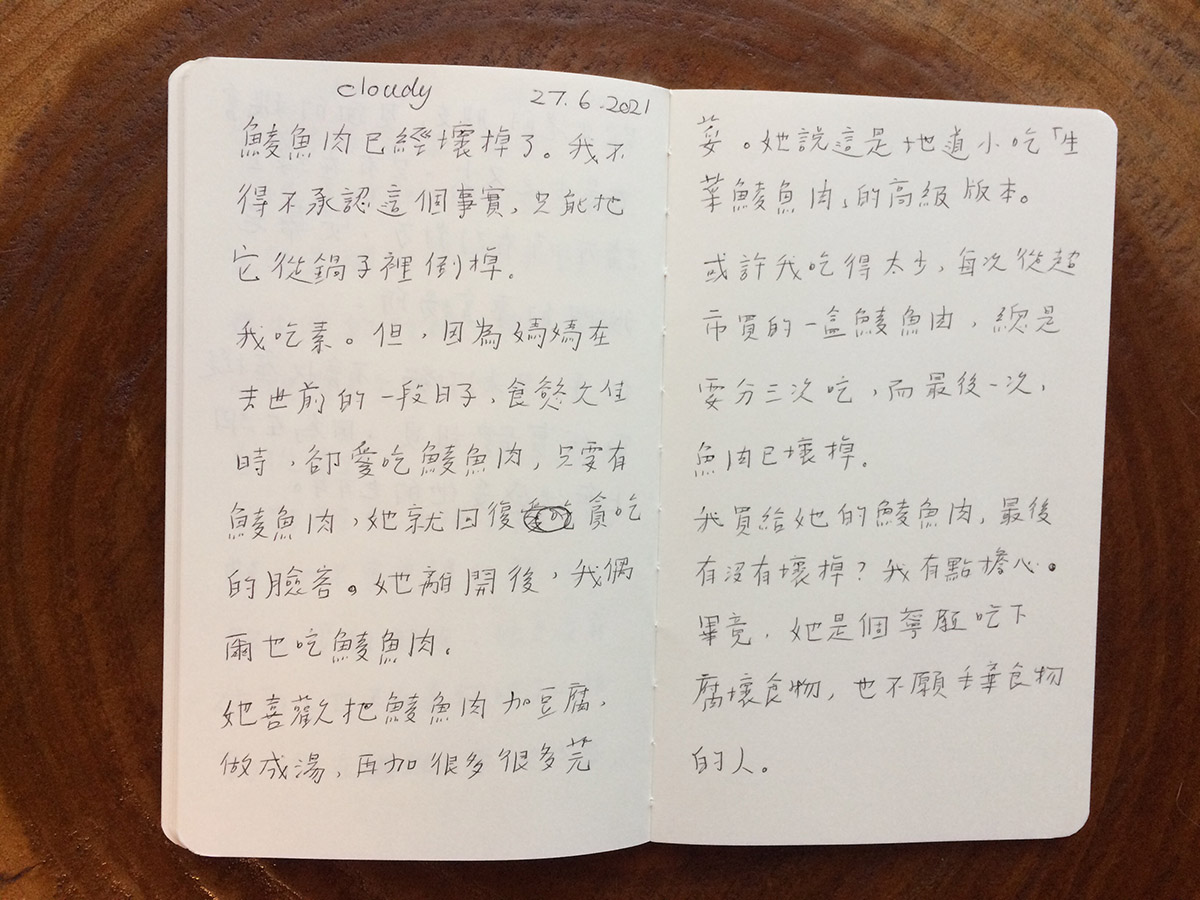 cloudy 27.6.2021
鯪魚肉已經壞掉了。我不
得不承認這個事實，只能把
它從鍋子裡倒掉。
我吃素。但，因為媽媽在
去世前的一段日子，食慾欠佳
時，卻愛吃鯪魚肉，只要有
鯪魚肉，她就回復貪吃
的臉容。她離開後，我偶
爾也吃鯪魚肉。
她喜歡把鯪魚肉加豆腐，
做成湯，再加很多很多芫
荽。她說這是地道小吃「生
菜鯪魚肉」的高級版本。
或許我吃得太少，每次從超
市買的一盒鯪魚肉，總是
要分三次吃，而最後一次，
魚肉已壞掉。
我買給她的鯪魚肉，最後
有沒有壞掉？我有點擔心。
畢竟，她是個寧願吃下
腐壞食物，也不願丟棄食物
的人。